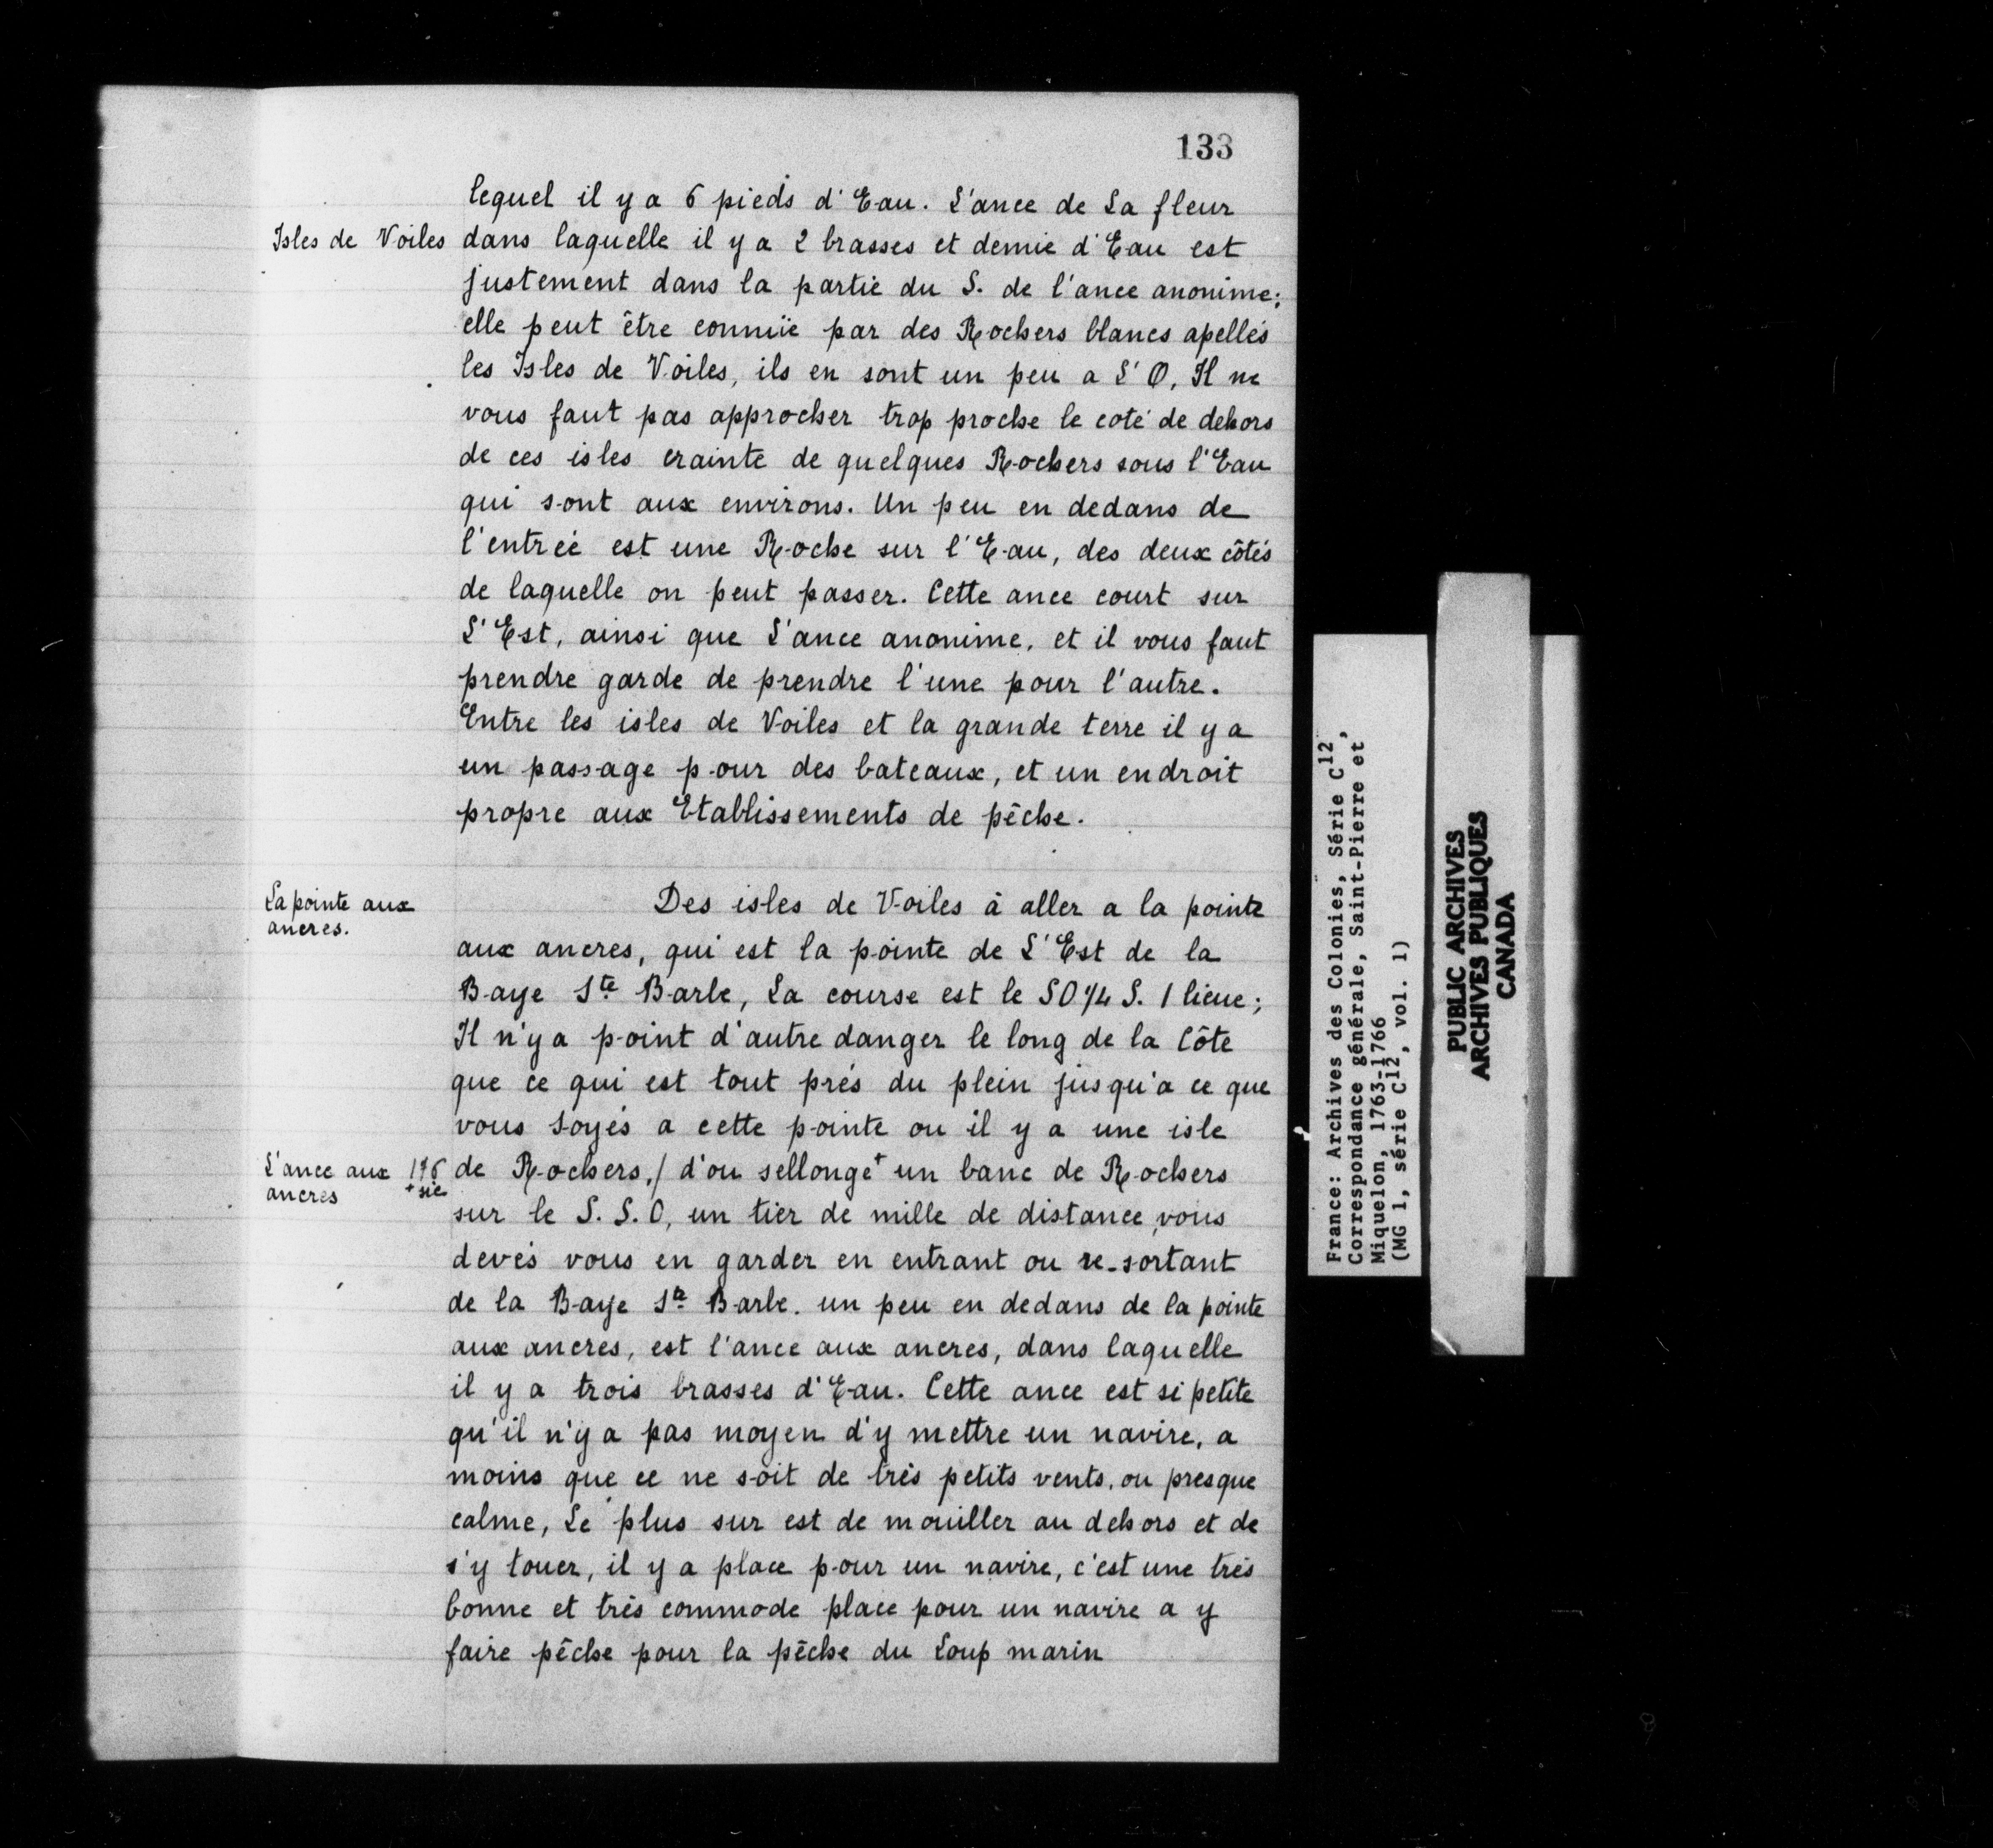 133
lequel il y a 6 pieds d'Eau. L'ance de La fleur
Isles de Voiles
dans laquelle il y a 2 brasses et demie d'Eau est
justement dans la partie du S. de l'ance anonime;
elle peut être connuë par des Rochers blancs apellés
les Isles de Voiles, ils en sont un peu a L'O, Il ne
vous faut pas approcher trop proche le coté de dehors
de ces isles crainte de quelques Rochers sous l'Eau
qui sont aux environs. Un peu en dedans de
l'entrée est une Roche sur l'Eau, des deux côtés
de laquelle on peut passer. Cette ance court sur
L'Est, ainsi que L'ance anonime, et il vous faut
prendre garde de prendre l'une pour l'autre.
Entre les isles de Voiles et la grande terre il y a
un passage pour des bateaux, et un endroit
propre aux Etablissements de pêche.
La pointe aux
ancres.
Des isles de Voiles à aller a la pointe
aux ancres, qui est la pointe de L'Est de la
Baye Ste Barbe, La course est le SO 1/4 S. 1 lieue;
Il n'y a point d'autre danger le long de la Côte
que ce qui est tout prés du plein jusqu'a ce que
vous soyés a cette pointe ou il y a une isle
L'ance aux
ancres
176
+ sic
de Rochers, / d'ou sellonge+ un banc de Rochers
sur le S. S. O, un tier de mille de distance, vous
devés vous en garder en entrant ou re-sortant
de la Baye Ste Barbe. un peu en dedans de la pointe
aux ancres, est l'ance aux ancres, dans laquelle
il y a trois brasses d'Eau. Cette ance est si petite
qu'il n'y a pas moyen d'y mettre un navire, a
moins que ce ne soit de très petits vents, ou presque
calme, Le plus sur est de mouiller au dehors et de
s'y touer, il y a place pour un navire, c'est une très
bonne et très commode place pour un navire a y
faire pêche pour la pêche du Loup marin
France: Archives des Colonies, Série C12,
Correspondance générale, Saint-Pierre et
Miquelon, 1763-1766
(MG 1, série C12, vol. 1)
PUBLIC ARCHIVES
ARCHIVES PUBLIQUES
CANADA